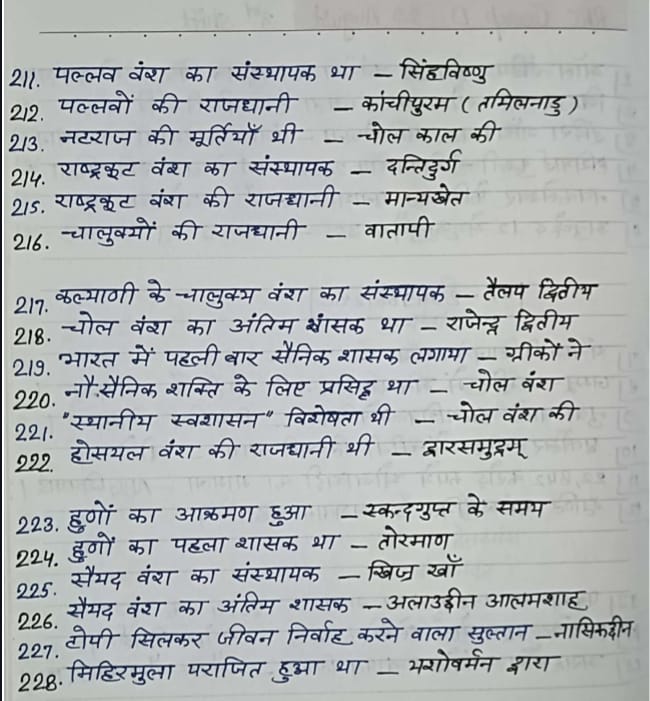 211. पल्लव वंश का संस्थापक था – सिंहविष्णु
212. पल्लवों की राजधानी – कांचीपुरम (तमिलनाडु)
213. नटराज की मूर्तियाँ थी – चोल काल की
214. राष्ट्रकूट वंश का संस्थापक – दन्तिदुर्ग
215. राष्ट्रकूट वंश की राजधानी – मान्यखेत
216. चालुक्यों की राजधानी – वातापी
217. कल्याणी के चालुक्य वंश का संस्थापक – तैलप द्वितीय
218. चोल वंश का अंतिम शासक था – राजेन्द्र द्वितीय
219. भारत में पहली बार सैनिक शासक लगाया – ग्रीकों ने
220. नौ.सैनिक शक्ति के लिए प्रसिद्ध था – चोल वंश
221. "स्थानीय स्वशासन" विशेषता थी – चोल वंश की
222. होसयल वंश की राजधानी थी – द्वारसमुद्रम्
223. हुणों का आक्रमण हुआ – स्कन्दगुप्त के समय
224. हुणों का पहला शासक था – तोरमाण
225. सैयद वंश का संस्थापक – खिज्र खाँ
226. सैयद वंश का अंतिम शासक – अलाउद्दीन आलमशाह
227. टोपी सिलकर जीवन निर्वाह करने वाला सुल्तान – नासिरूद्दीन
228. मिहिरमुला पराजित हुआ था – यशोवर्मन द्वारा